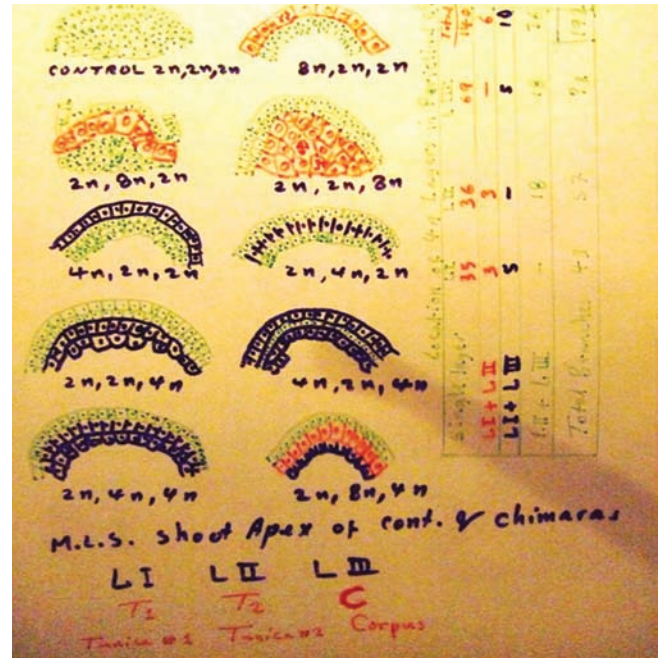 CONTROL 2n,2n,2n
8n,2n,2n
2n,8n,2n
2n,2n,8n
4n,2n,2n
2n,4n,2n
2n,2n,4n
4n,2n,4n
2n,4n,4n
2n,8n,4n
M.L.S. shoot Apex of cont. & chimaras
LI LII LIII
T1 T2 C
Tunica #1 Tunica #2 Corpus
Location of 4n Layer
Single layer 35 36 69 140
LI + LII 3 3 — 6
LI + LIII 5 — 5 10
LII + LIII — 18 18
Total Branches 43 57